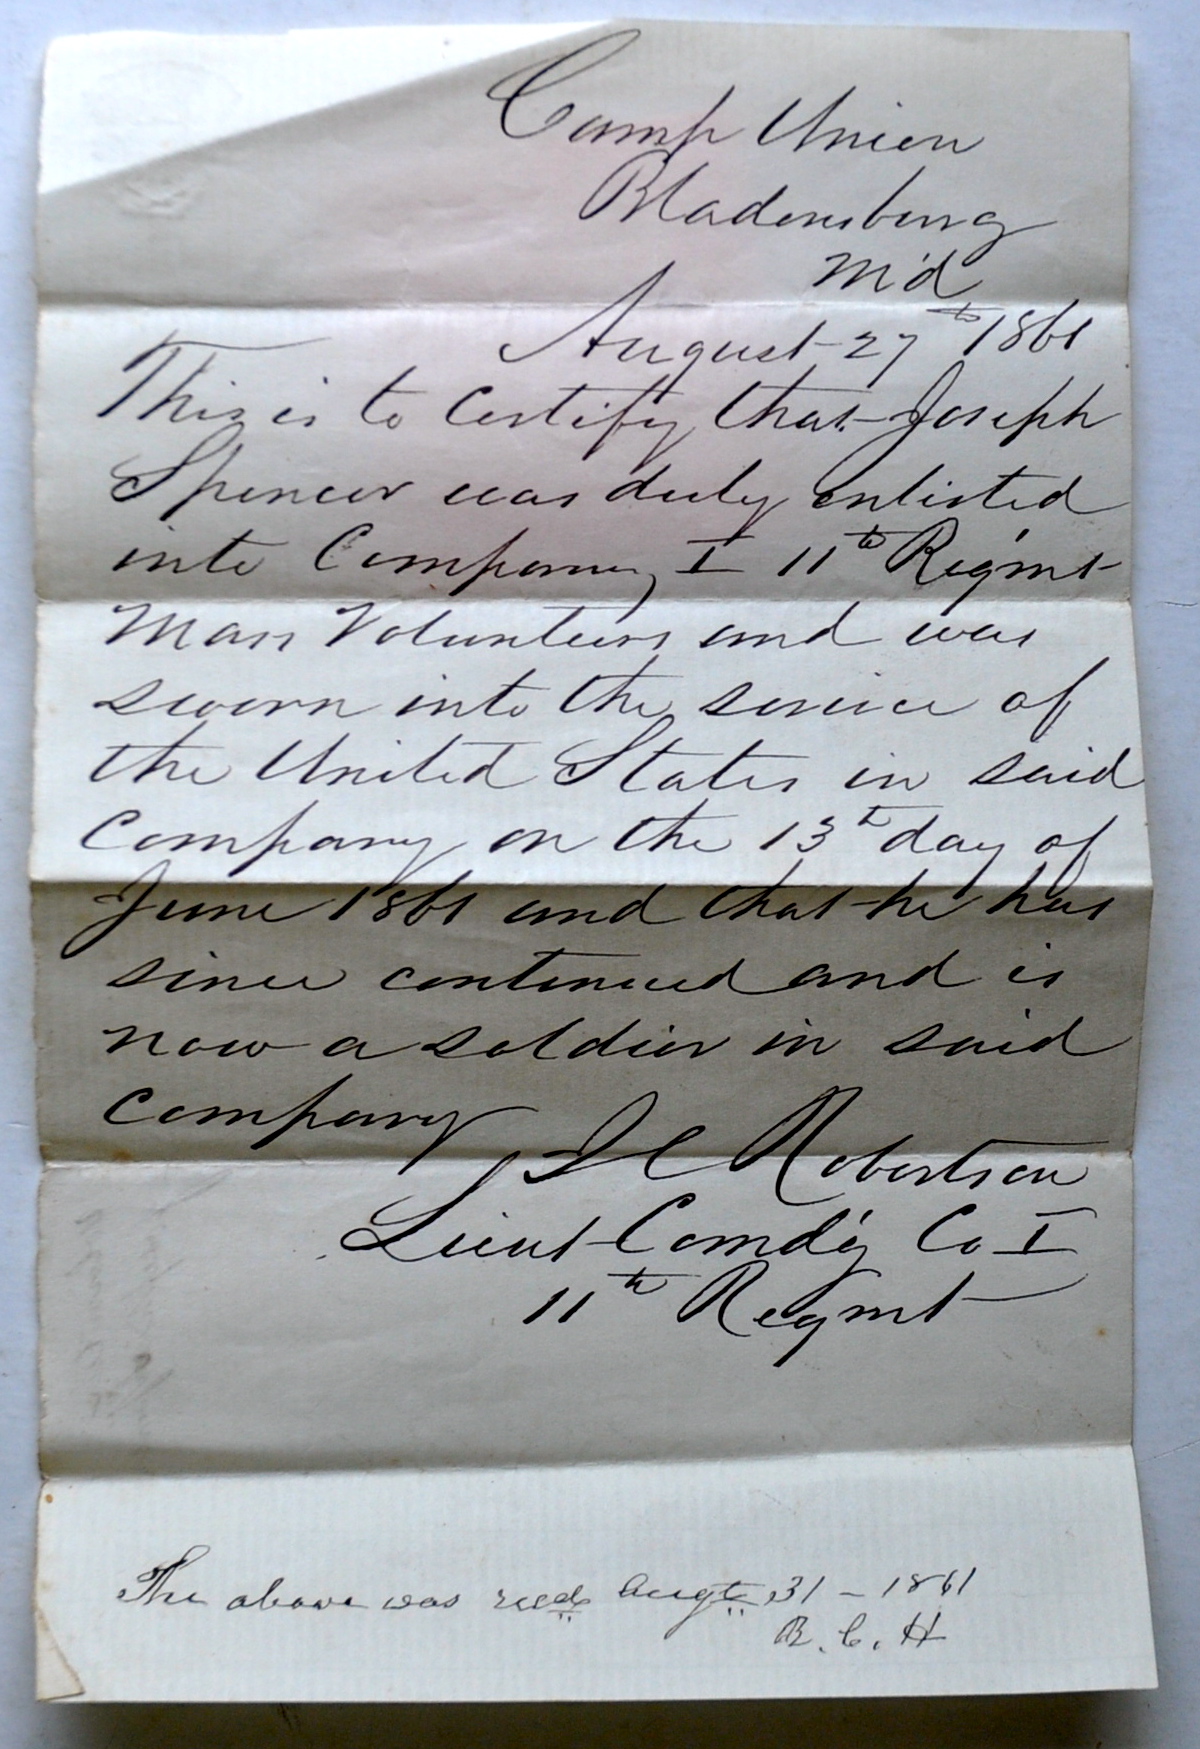 Camp Union
Bladensburg
M'd
August 27th 1861
This is to Certify that Joseph
Spencer was duly enlisted
into Company I 11th Regmt
Mass Volunteers and was
sworn into the service of
the United States in said
Company on the 13th day of
June 1861 and that he has
since continued and is
now a soldier in said
Company
J C Robertson
Lieut Comd'g Co I
11th Regmt
The above was recd Augt 31 - 1861
B. C. H